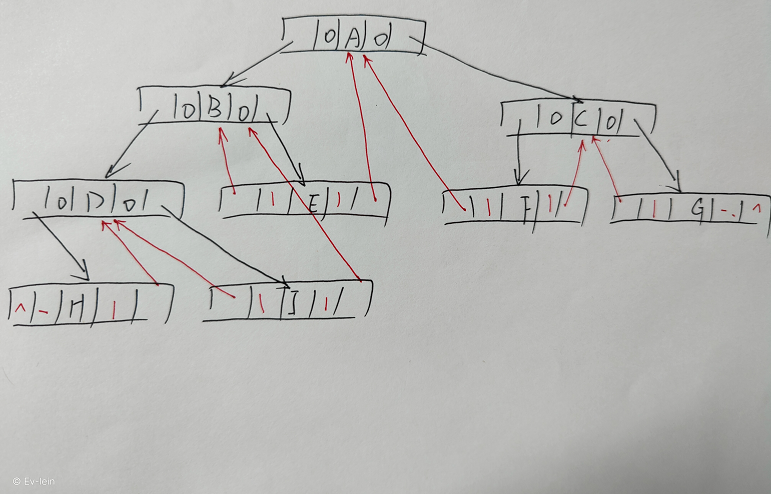 |0|A|0|
|0|B|0|
|0|C|0|
|0|D|0|
|1|E|1|
|1|F|1|
|1|G|-|^
^|-|H|1|
|1|I|1|
© Ev-lein